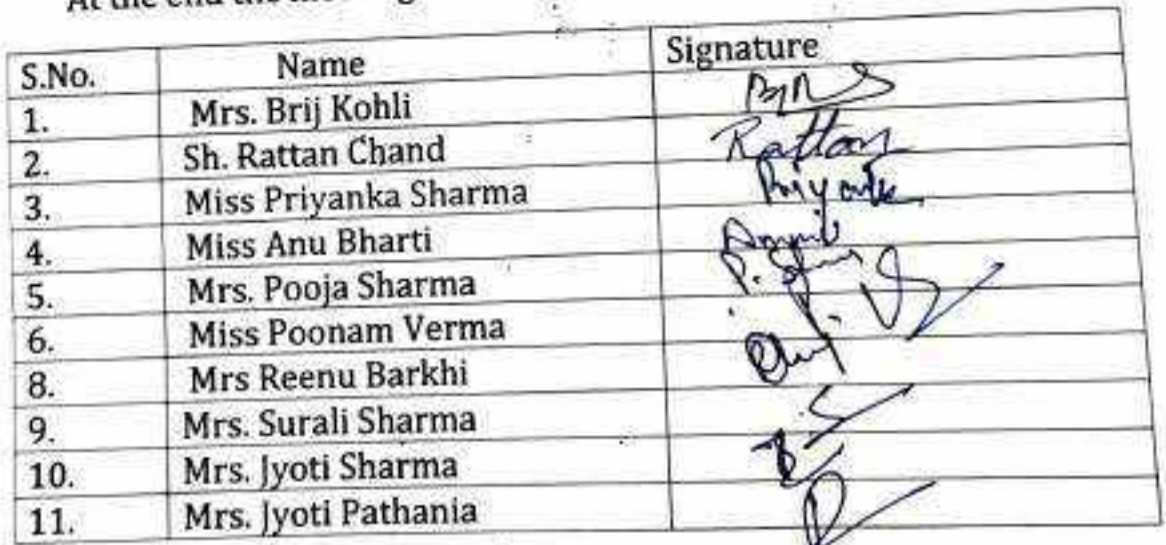 At the end the
S.No. Name Signature
1. Mrs. Brij Kohli
2. Sh. Rattan Chand Rattan
3. Miss Priyanka Sharma Priyanka
4. Miss Anu Bharti
5. Mrs. Pooja Sharma
6. Miss Poonam Verma
8. Mrs Reenu Barkhi
9. Mrs. Surali Sharma
10. Mrs. Jyoti Sharma
11. Mrs. Jyoti Pathania